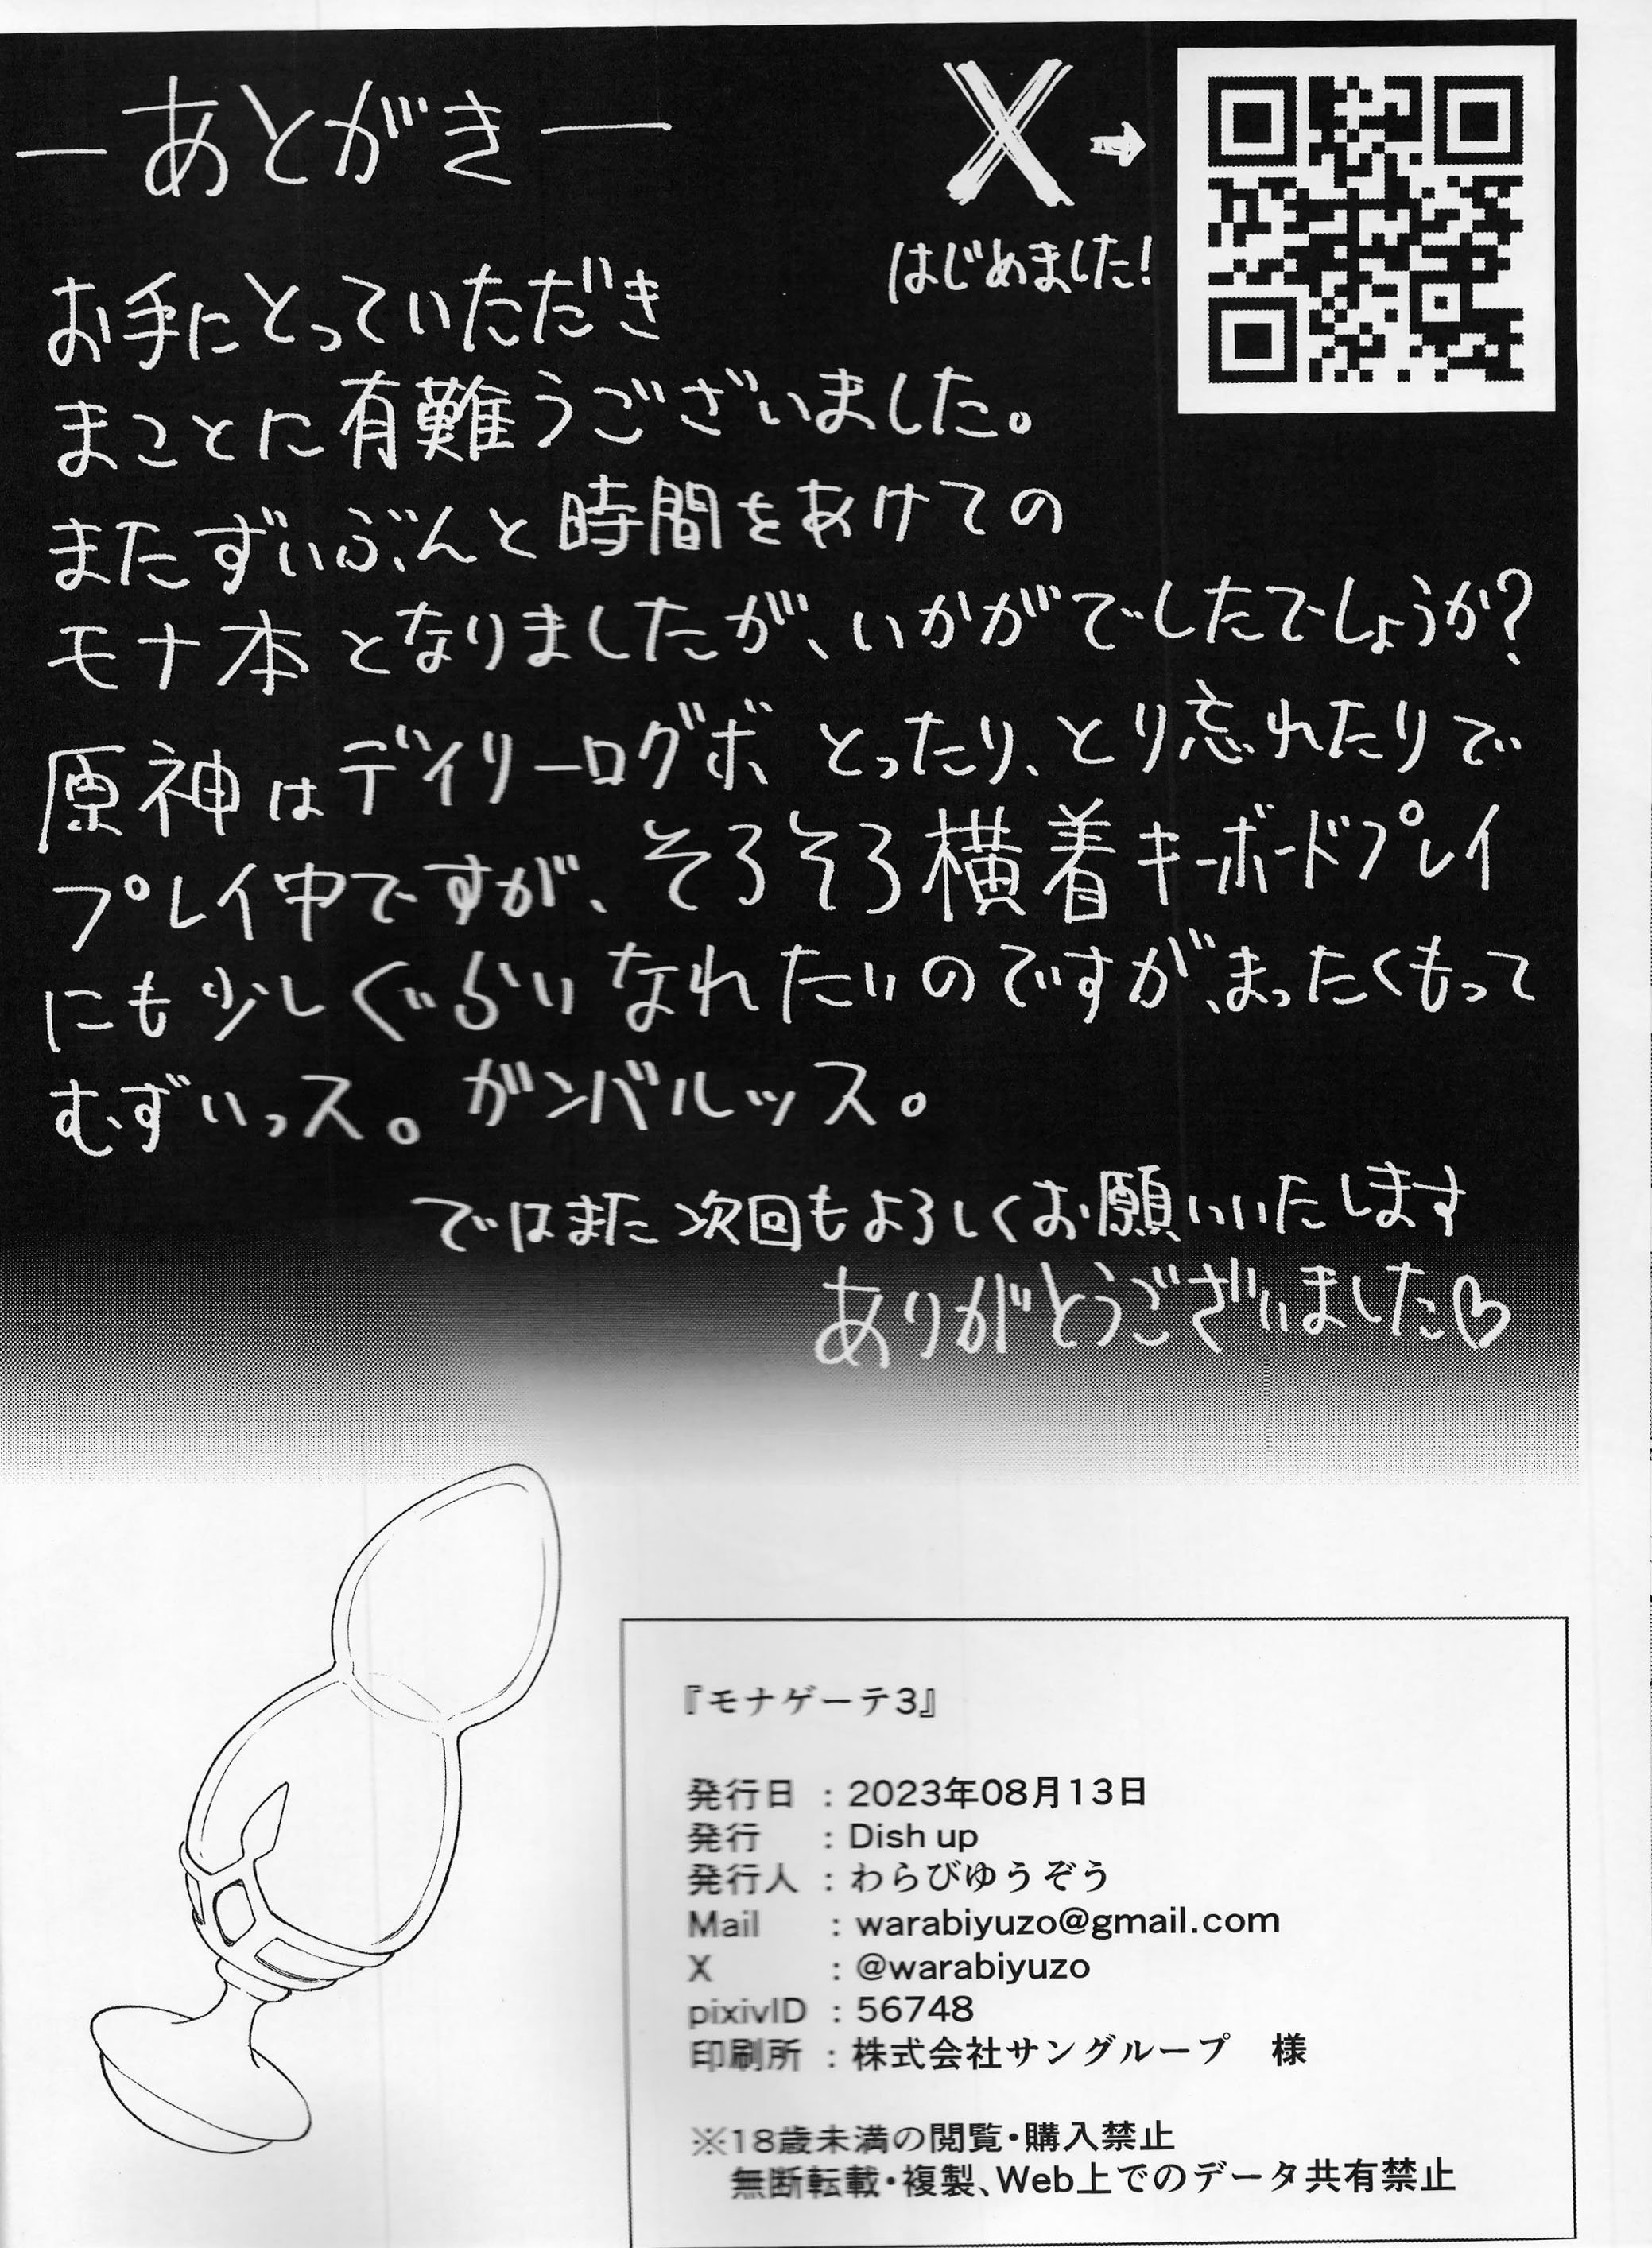 ーあとがきー
X
はじめました!
お手にとっていただき
まことに有難うございました。
またずいぶんと時間をあけての
モナ本となりましたが、いかがでしたでしょうか?
原神はデイリーログボとったり、とり忘れたりで
プレイ中ですが、そろそろ横着キーボードプレイ
にも少しぐらいなれたいのですが、まったくもって
むずいっス。ガンバルッス。
ではまた次回もよろしくお願いいたします
ありがとうございました♡
『モナゲーテ3』
発行日 : 2023年08月13日
発行 : Dish up
発行人 : わらびゆうぞう
Mail : warabiyuzo@gmail.com
X : @warabiyuzo
pixivID : 56748
印刷所 : 株式会社サングループ 様
※18歳未満の閲覧・購入禁止
無断転載・複製、Web上でのデータ共有禁止